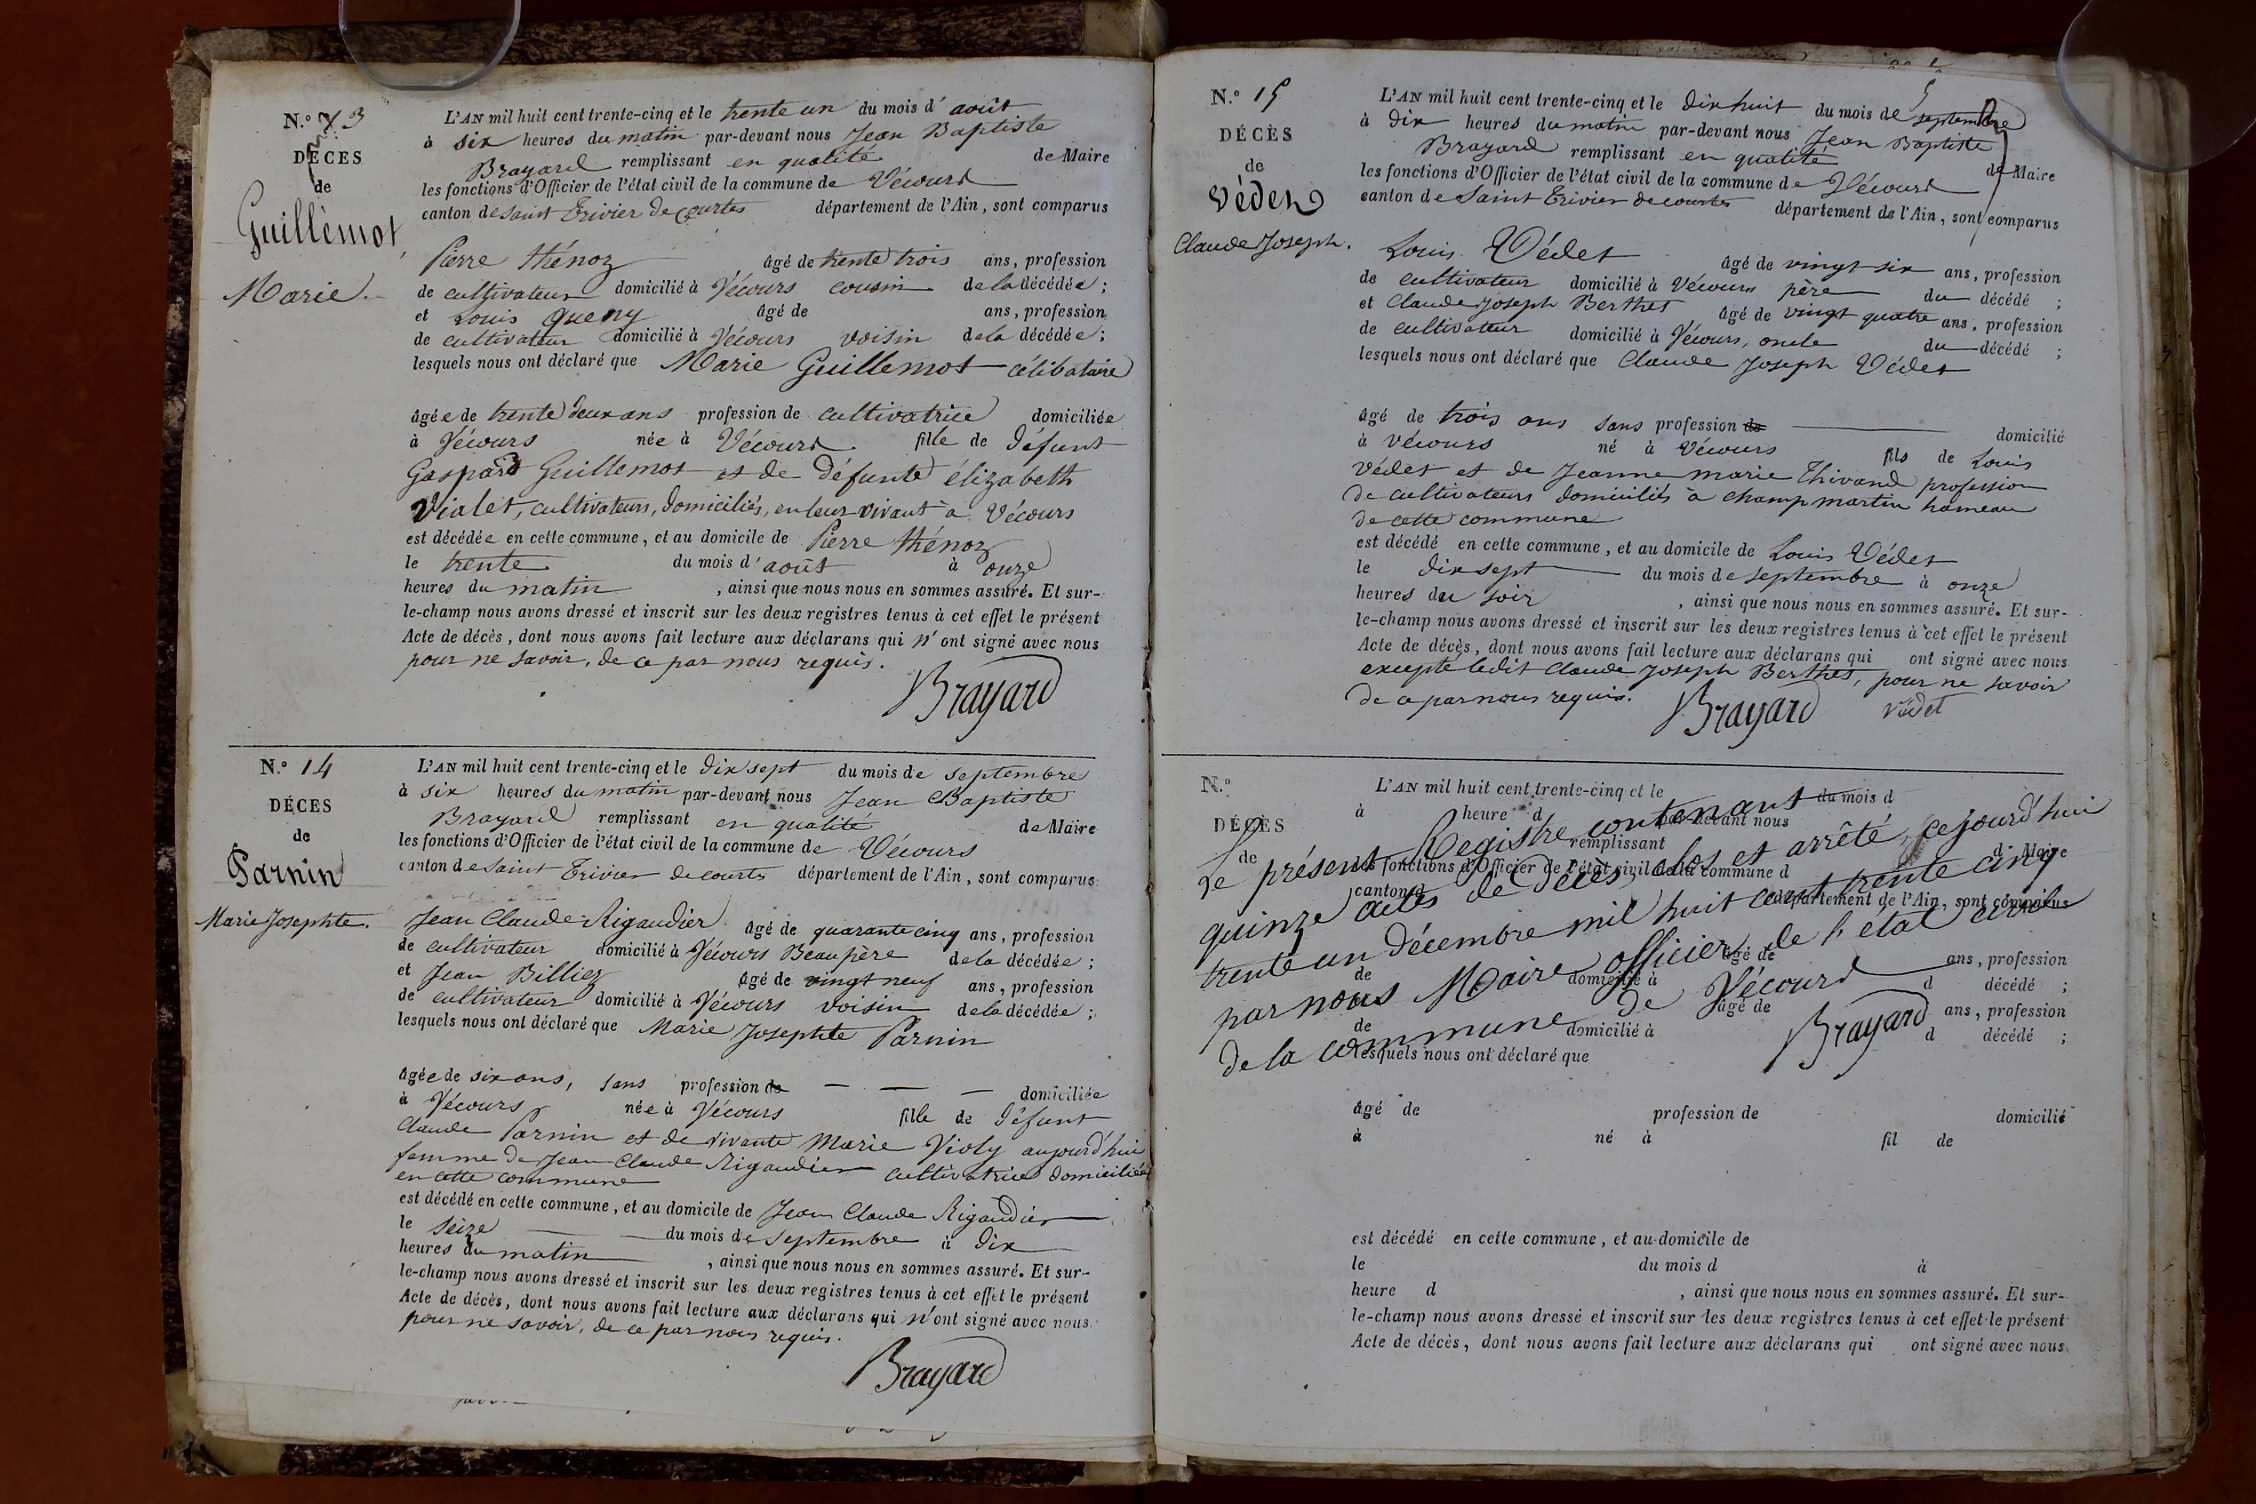 N.º 13
DÉCES
de
Guillèmot
Marie.
L'AN mil huit cent trente-cinq et le trente un du mois d'août
à six heures du matin par-devant nous Jean Baptiste
Brayard remplissant en qualité de Maire
les fonctions d'Officier de l'état civil de la commune de Vécours
canton de Saint Trivier de courtes département de l'Ain, sont comparus
Pierre thénoz âgé de trente trois ans, profession
de cultivateur domicilié à Vécours cousin de la décédée ;
et Louis queny âgé de ans, profession
de cultivateur domicilié à Vécours voisin de la décédée ;
lesquels nous ont déclaré que Marie Guillemot célibataire
âgée de trente deux ans profession de cultivatrice domiciliée
à Vécours née à Vécours fille de défunt
Gaspard Guillemot et de défunte élizabeth
Vialet, cultivateurs, domiciliés, en leur vivant à Vécours
est décédée en cette commune, et au domicile de Pierre thénoz
le trente du mois d'août à onze
heures du matin , ainsi que nous nous en sommes assuré. Et sur-
le-champ nous avons dressé et inscrit sur les deux registres tenus à cet effet le présent
Acte de décès, dont nous avons fait lecture aux déclarans qui n'ont signé avec nous
pour ne savoir, de ce par nous requis.
Brayard
N.º 14
DÉCES
de
Parnin
Marie Josephte.
L'AN mil huit cent trente-cinq et le dix sept du mois de septembre
à six heures du matin par-devant nous Jean Baptiste
Brayard remplissant en qualité de Maire
les fonctions d'Officier de l'état civil de la commune de Vécours
canton de Saint Trivier de courtes département de l'Ain, sont comparus
Jean Claude Rigaudier âgé de quarante cinq ans, profession
de cultivateur domicilié à Vécours Beaupère de la décédée ;
et Jean Billiez âgé de vingt neuf ans, profession
de cultivateur domicilié à Vécours voisin de la décédée ;
lesquels nous ont déclaré que Marie Josephte Parnin
âgée de six ans, sans profession de domiciliée
à Vécours née à Vécours fille de défunt
Claude Parnin et de vivante Marie Violy aujourd'hui
femme de Jean Claude Rigaudier cultivatrice domiciliée
en cette commune
est décédé en cette commune, et au domicile de Jean Claude Rigaudier
le seize du mois de septembre à dix
heures du matin , ainsi que nous nous en sommes assuré. Et sur-
le-champ nous avons dressé et inscrit sur les deux registres tenus à cet effet le présent
Acte de décès, dont nous avons fait lecture aux déclarans qui n'ont signé avec nous
pour ne savoir, de ce par nous requis.
Brayard
N.º 15
DÉCÈS
de
Védet
Claude Joseph.
L'AN mil huit cent trente-cinq et le dix huit du mois de septembre
à dix heures du matin par-devant nous Jean Baptiste
Brayard remplissant en qualité de Maire
les fonctions d'Officier de l'état civil de la commune de Vécours
canton de Saint Trivier de courtes département de l'Ain, sont comparus
Louis Védet âgé de vingt six ans, profession
de cultivateur domicilié à Vécours père du décédé ;
et Claude Joseph Berthet âgé de vingt quatre ans, profession
de cultivateur domicilié à Vécours, oncle du décédé ;
lesquels nous ont déclaré que Claude Joseph Védet
âgé de trois ans sans profession de domicilié
à Vécours né à Vécours fils de Louis
Védet et de Jeanne marie Thivand profession
de cultivateurs domiciliés à champ martin hameau
de cette commune
est décédé en cette commune, et au domicile de Louis Védet
le dix sept du mois de septembre à onze
heures du soir , ainsi que nous nous en sommes assuré. Et sur-
le-champ nous avons dressé et inscrit sur les deux registres tenus à cet effet le présent
Acte de décès, dont nous avons fait lecture aux déclarans qui ont signé avec nous
excepté ledit Claude Joseph Berthet, pour ne savoir
de ce par nous requis.
Brayard védet
N.º
DÉCÈS
de
L'AN mil huit cent trente-cinq et le du mois d
à heure d par-devant nous
remplissant d Maire
les fonctions d'Officier de l'état civil de la commune d
canton d département de l'Ain, sont comparus
Le présent Registre contenant
quinze actes de Décès, clos et arrêté, cejourd'hui
trente un décembre mil huit cent trente cinq
par nous Maire officier de l'état civil
de la commune de Vécours
Brayard
âgé de ans, profession
de domicilié à d décédé ;
âgé de ans, profession
de domicilié à d décédé ;
lesquels nous ont déclaré que
âgé de profession de domicilié
à né à fil de
est décédé en cette commune, et au domicile de
le du mois d à
heure d , ainsi que nous nous en sommes assuré. Et sur-
le-champ nous avons dressé et inscrit sur les deux registres tenus à cet effet le présent
Acte de décès, dont nous avons fait lecture aux déclarans qui ont signé avec nous